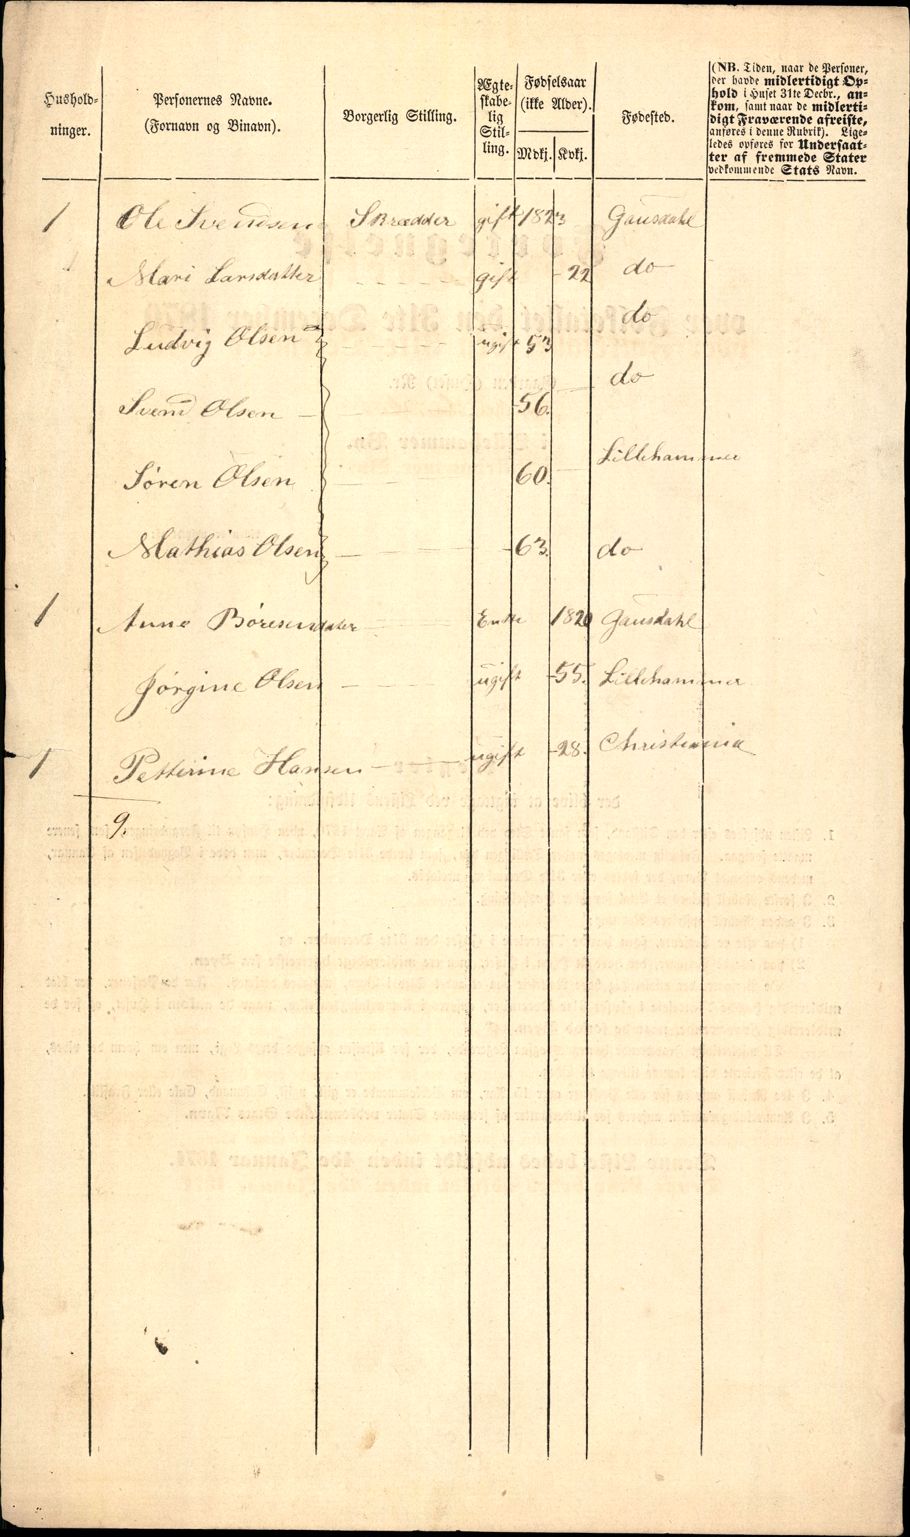 Hushold-
ninger.
Personernes Navne.
(Fornavn og Binavn).
Borgerlig Stilling.
Ægte-
skabe-
lig
Stil-
ling.
Fødselsaar
(ikke Alder).
Mdkj. Kvkj.
Fødested.
(NB. Tiden, naar de Personer,
der havde midlertidigt Op-
hold i Huset 31te Decbr., an-
kom, samt naar de midlerti-
digt Fraværende afreiste,
anføres i denne Rubrik). Lige-
ledes opføres for Undersaat-
ter af fremmede Stater
vedkommende Stats Navn.
1 Ole Svendsen Skrædder gift 1823 Gausdahl
Mari Larsdatter gift - 22 do
Ludvig Olsen ugift 53 do
Svend Olsen - 56. do
Søren Olsen 60. Lillehammer
Mathias Olsen - 63. do
1 Anne Børesendater Enke 1820 Gausdahl
Jørgine Olsen ugift - 55. Lillehammer
1 Petterine Hansen ugift - 28. Christiania
9.